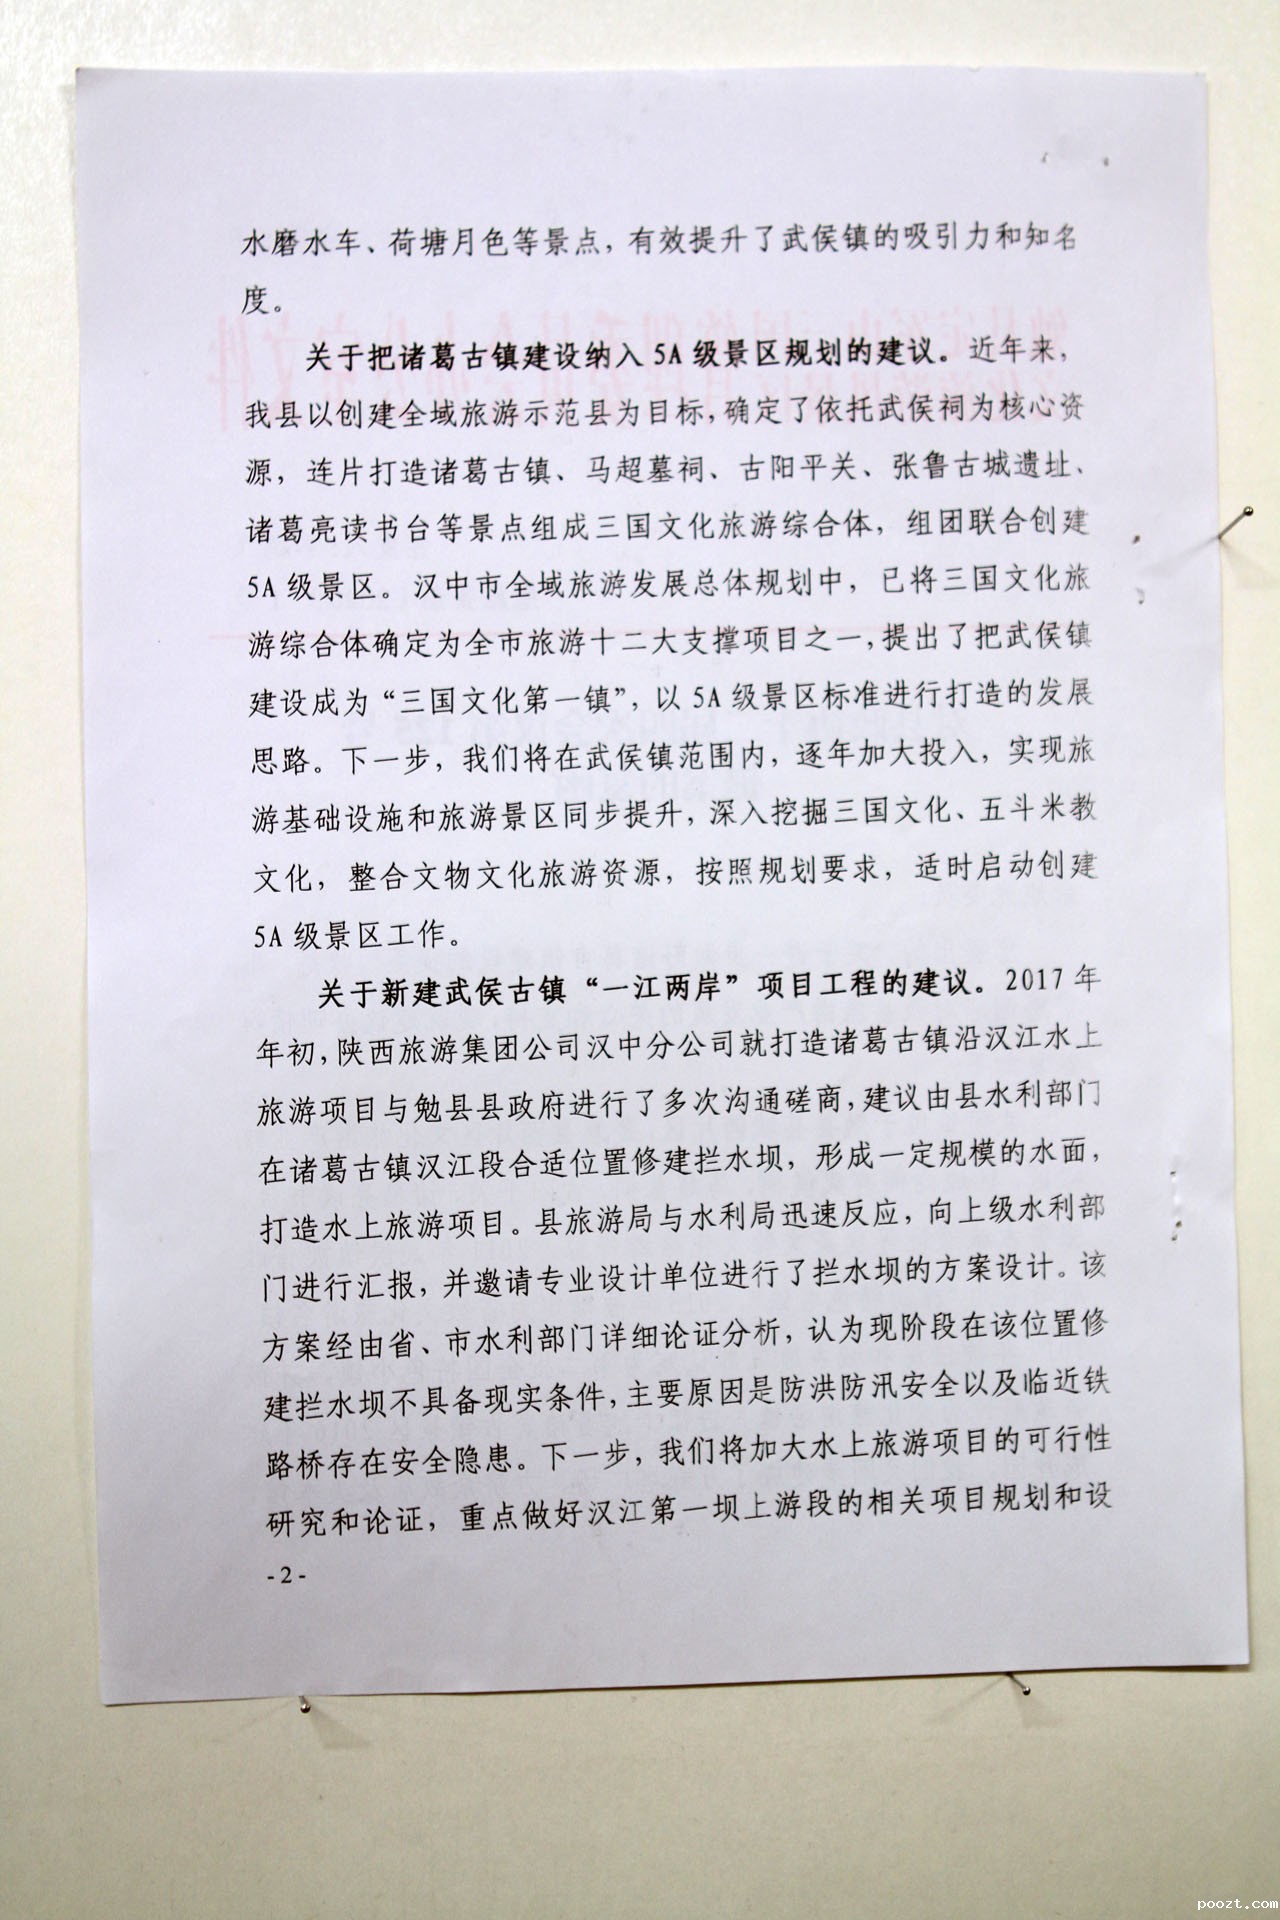 水磨水车、荷塘月色等景点，有效提升了武侯镇的吸引力和知名
度。
关于把诸葛古镇建设纳入 5A 级景区规划的建议。近年来，
我县以创建全域旅游示范县为目标，确定了依托武侯祠为核心资
源，连片打造诸葛古镇、马超墓祠、古阳平关、张鲁古城遗址、
诸葛亮读书台等景点组成三国文化旅游综合体，组团联合创建
5A 级景区。汉中市全域旅游发展总体规划中，已将三国文化旅
游综合体确定为全市旅游十二大支撑项目之一，提出了把武侯镇
建设成为“三国文化第一镇”，以 5A 级景区标准进行打造的发展
思路。下一步，我们将在武侯镇范围内，逐年加大投入，实现旅
游基础设施和旅游景区同步提升，深入挖掘三国文化、五斗米教
文化，整合文物文化旅游资源，按照规划要求，适时启动创建
5A 级景区工作。
关于新建武侯古镇“一江两岸”项目工程的建议。2017 年
年初，陕西旅游集团公司汉中分公司就打造诸葛古镇沿汉江水上
旅游项目与勉县县政府进行了多次沟通磋商，建议由县水利部门
在诸葛古镇汉江段合适位置修建拦水坝，形成一定规模的水面，
打造水上旅游项目。县旅游局与水利局迅速反应，向上级水利部
门进行汇报，并邀请专业设计单位进行了拦水坝的方案设计。该
方案经由省、市水利部门详细论证分析，认为现阶段在该位置修
建拦水坝不具备现实条件，主要原因是防洪防汛安全以及临近铁
路桥存在安全隐患。下一步，我们将加大水上旅游项目的可行性
研究和论证，重点做好汉江第一坝上游段的相关项目规划和设
- 2 -
poozt.com